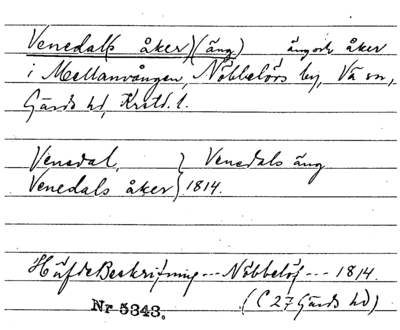 Venedal(s åker) (äng) äng och åker
i Mellanvången, Nöbbelövs by, Vä sn,
Gärds hd, Krstd. l.
Venedal, } Venedals äng
Venedals åker } 1814.
HäfdeBeskrifning --- Nöbbelöf --- 1814.
Nr 5343. (C 27 Gärds hd)